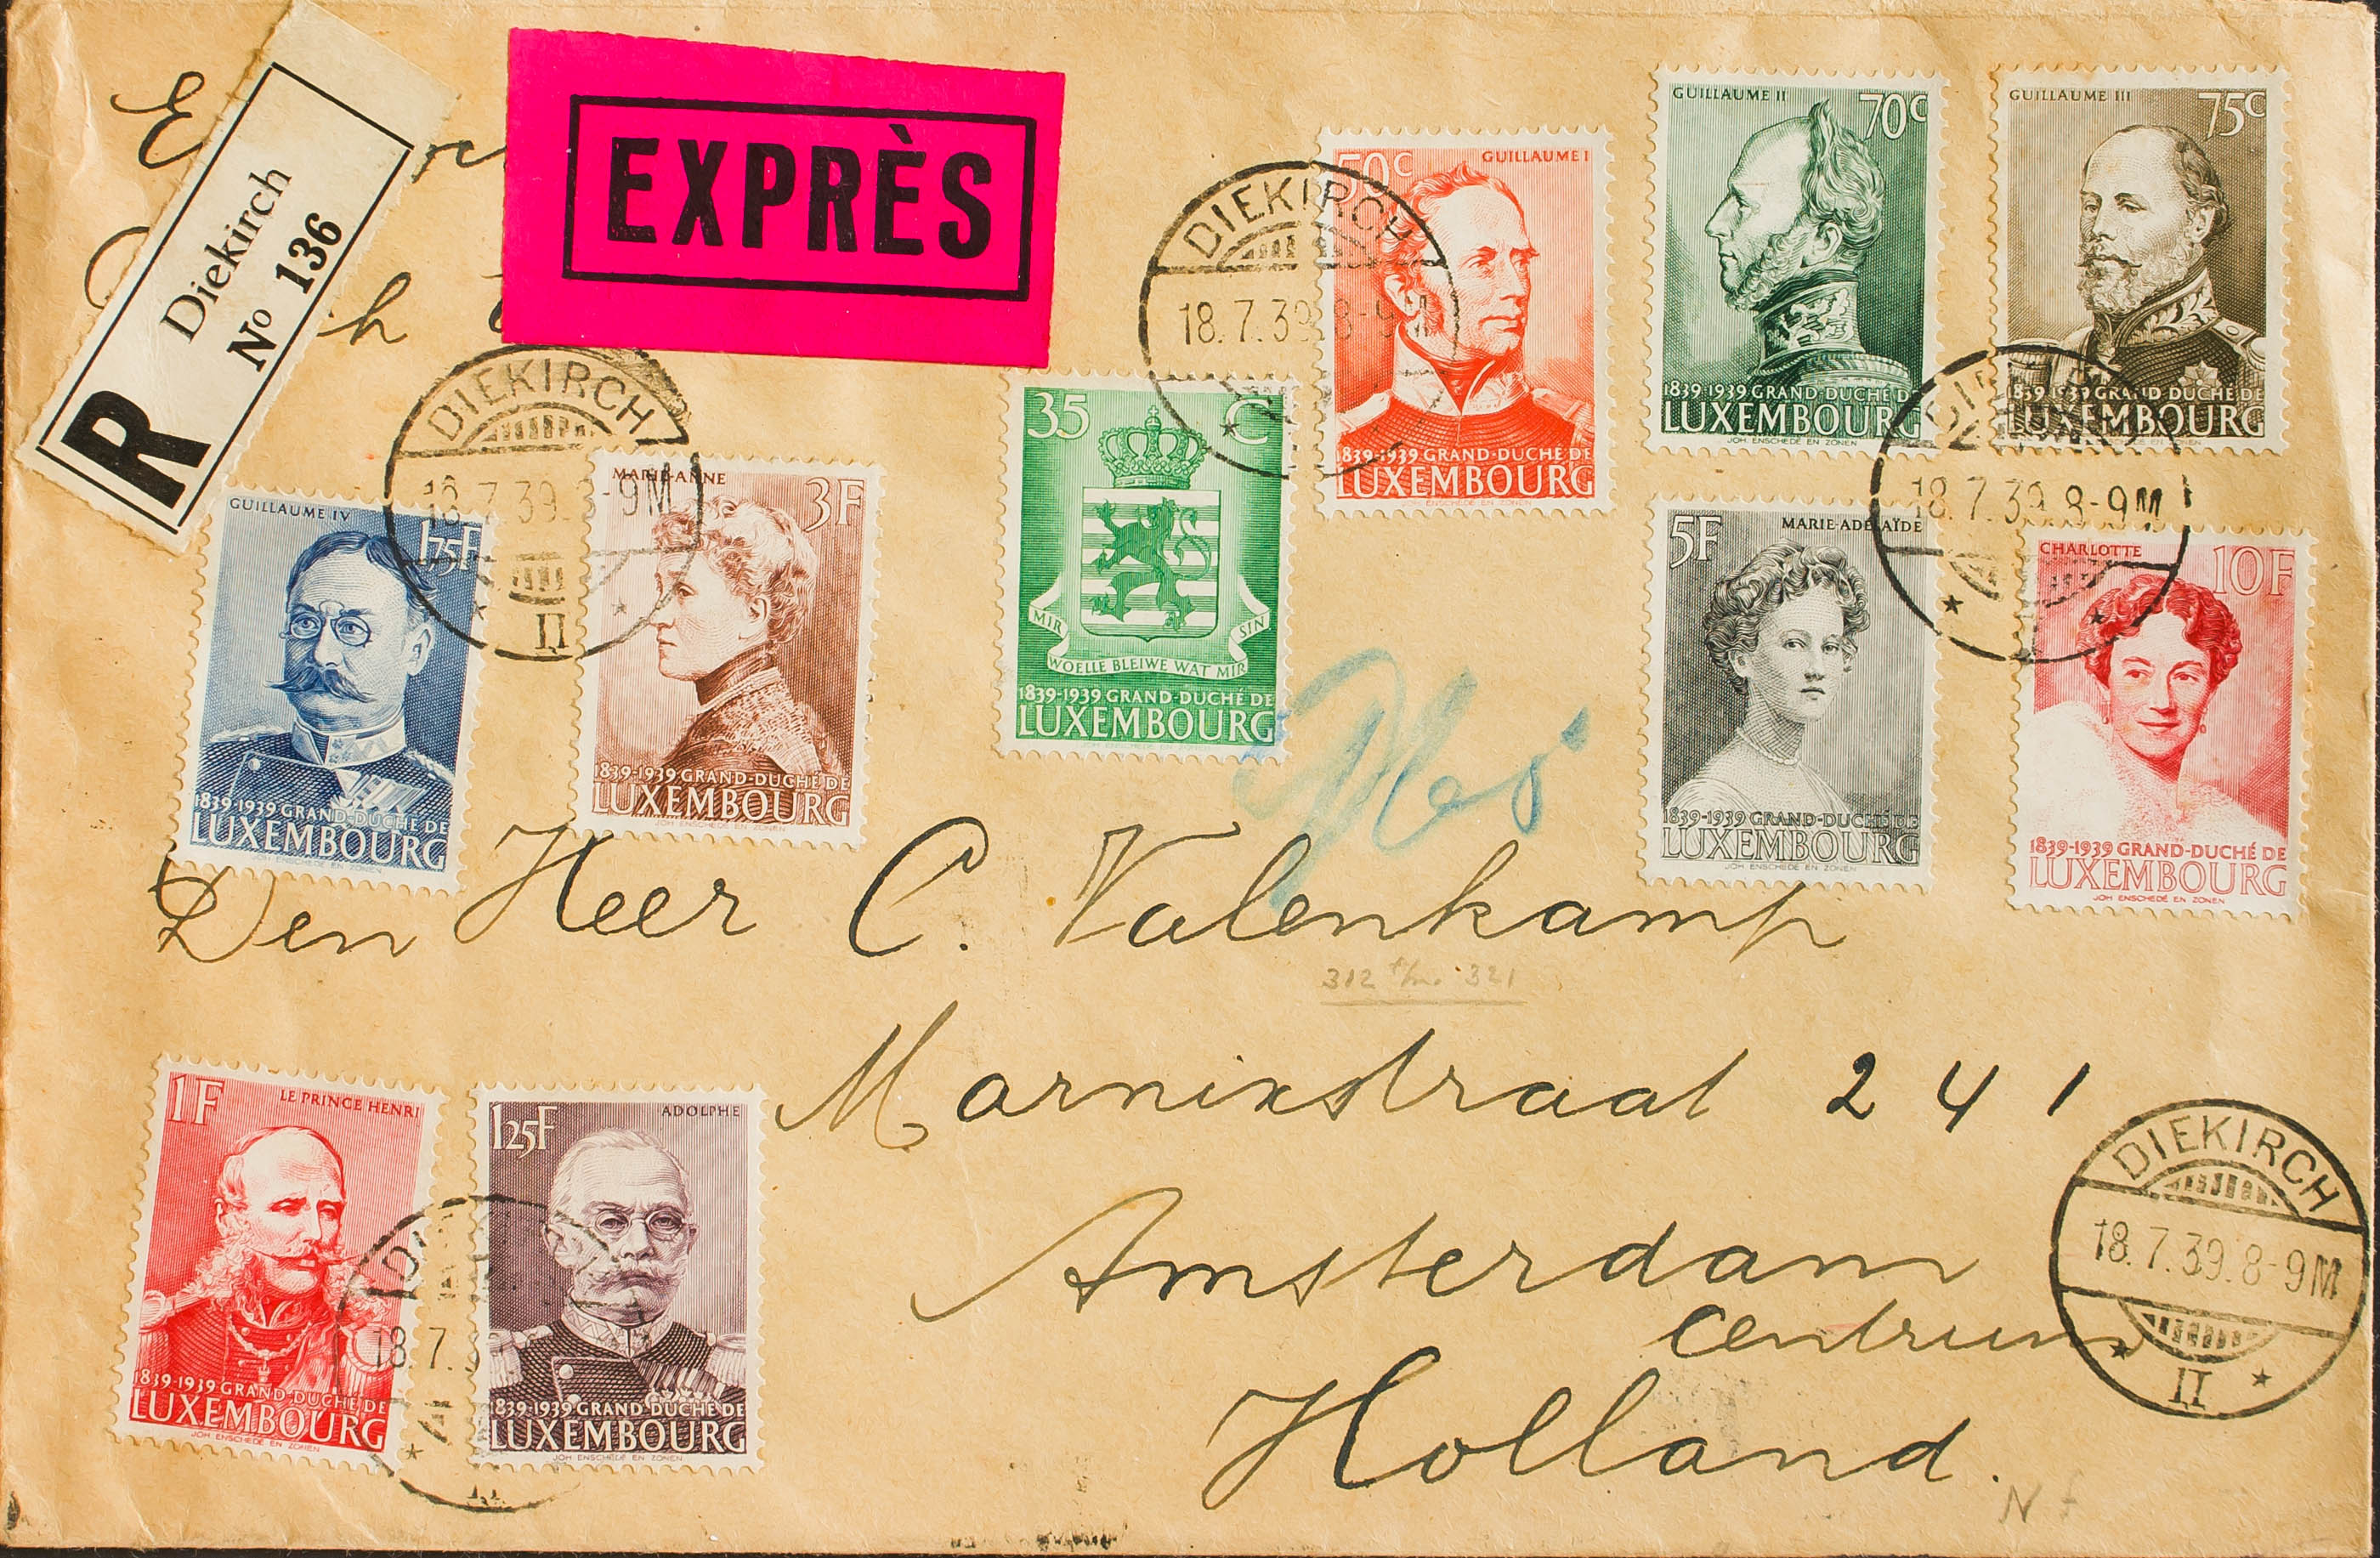 R
Diekirch
No 136
EXPRÈS
DIEKIRCH
18.7.39.8-9M
II
GUILLAUME IV
1,75F
1839-1939 GRAND-DUCHÉ DE
LUXEMBOURG
JOH ENSCHEDÉ EN ZONEN
MARIE-ANNE
3F
1839-1939 GRAND-DUCHÉ DE
LUXEMBOURG
JOH ENSCHEDÉ EN ZONEN
35 C
MIR SIN
WOELLE BLEIWE WAT MIR
1839-1939 GRAND-DUCHÉ DE
LUXEMBOURG
JOH ENSCHEDÉ EN ZONEN
DIEKIRCH
18.7.39.8-9M
50C
GUILLAUME I
1839-1939 GRAND-DUCHÉ DE
LUXEMBOURG
JOH ENSCHEDÉ EN ZONEN
GUILLAUME II
70C
1839-1939 GRAND-DUCHÉ D
LUXEMBOURG
JOH ENSCHEDÉ EN ZONEN
GUILLAUME III
75C
1839-1939 GRAND-DUCHÉ DE
LUXEMBOURG
JOH ENSCHEDÉ EN ZONEN
18.7.39.8-9M
5F
MARIE-ADELAÏDE
1839-1939 GRAND-DUCHÉ DE
LUXEMBOURG
JOH ENSCHEDÉ EN ZONEN
CHARLOTTE
10F
1839-1939 GRAND-DUCHÉ DE
LUXEMBOURG
JOH ENSCHEDÉ EN ZONEN
Den Heer C. Valenkamp
312 t/m 321
Marnixstraat 241
Amsterdam
Centrum
Holland.
1F
LE PRINCE HENRI
1839-1939 GRAND-DUCHÉ DE
LUXEMBOURG
JOH ENSCHEDÉ EN ZONEN
1,25F
ADOLPHE
1839-1939 GRAND-DUCHÉ DE
LUXEMBOURG
JOH ENSCHEDÉ EN ZONEN
18.7.
DIEKIRCH
18.7.39.8-9M
II